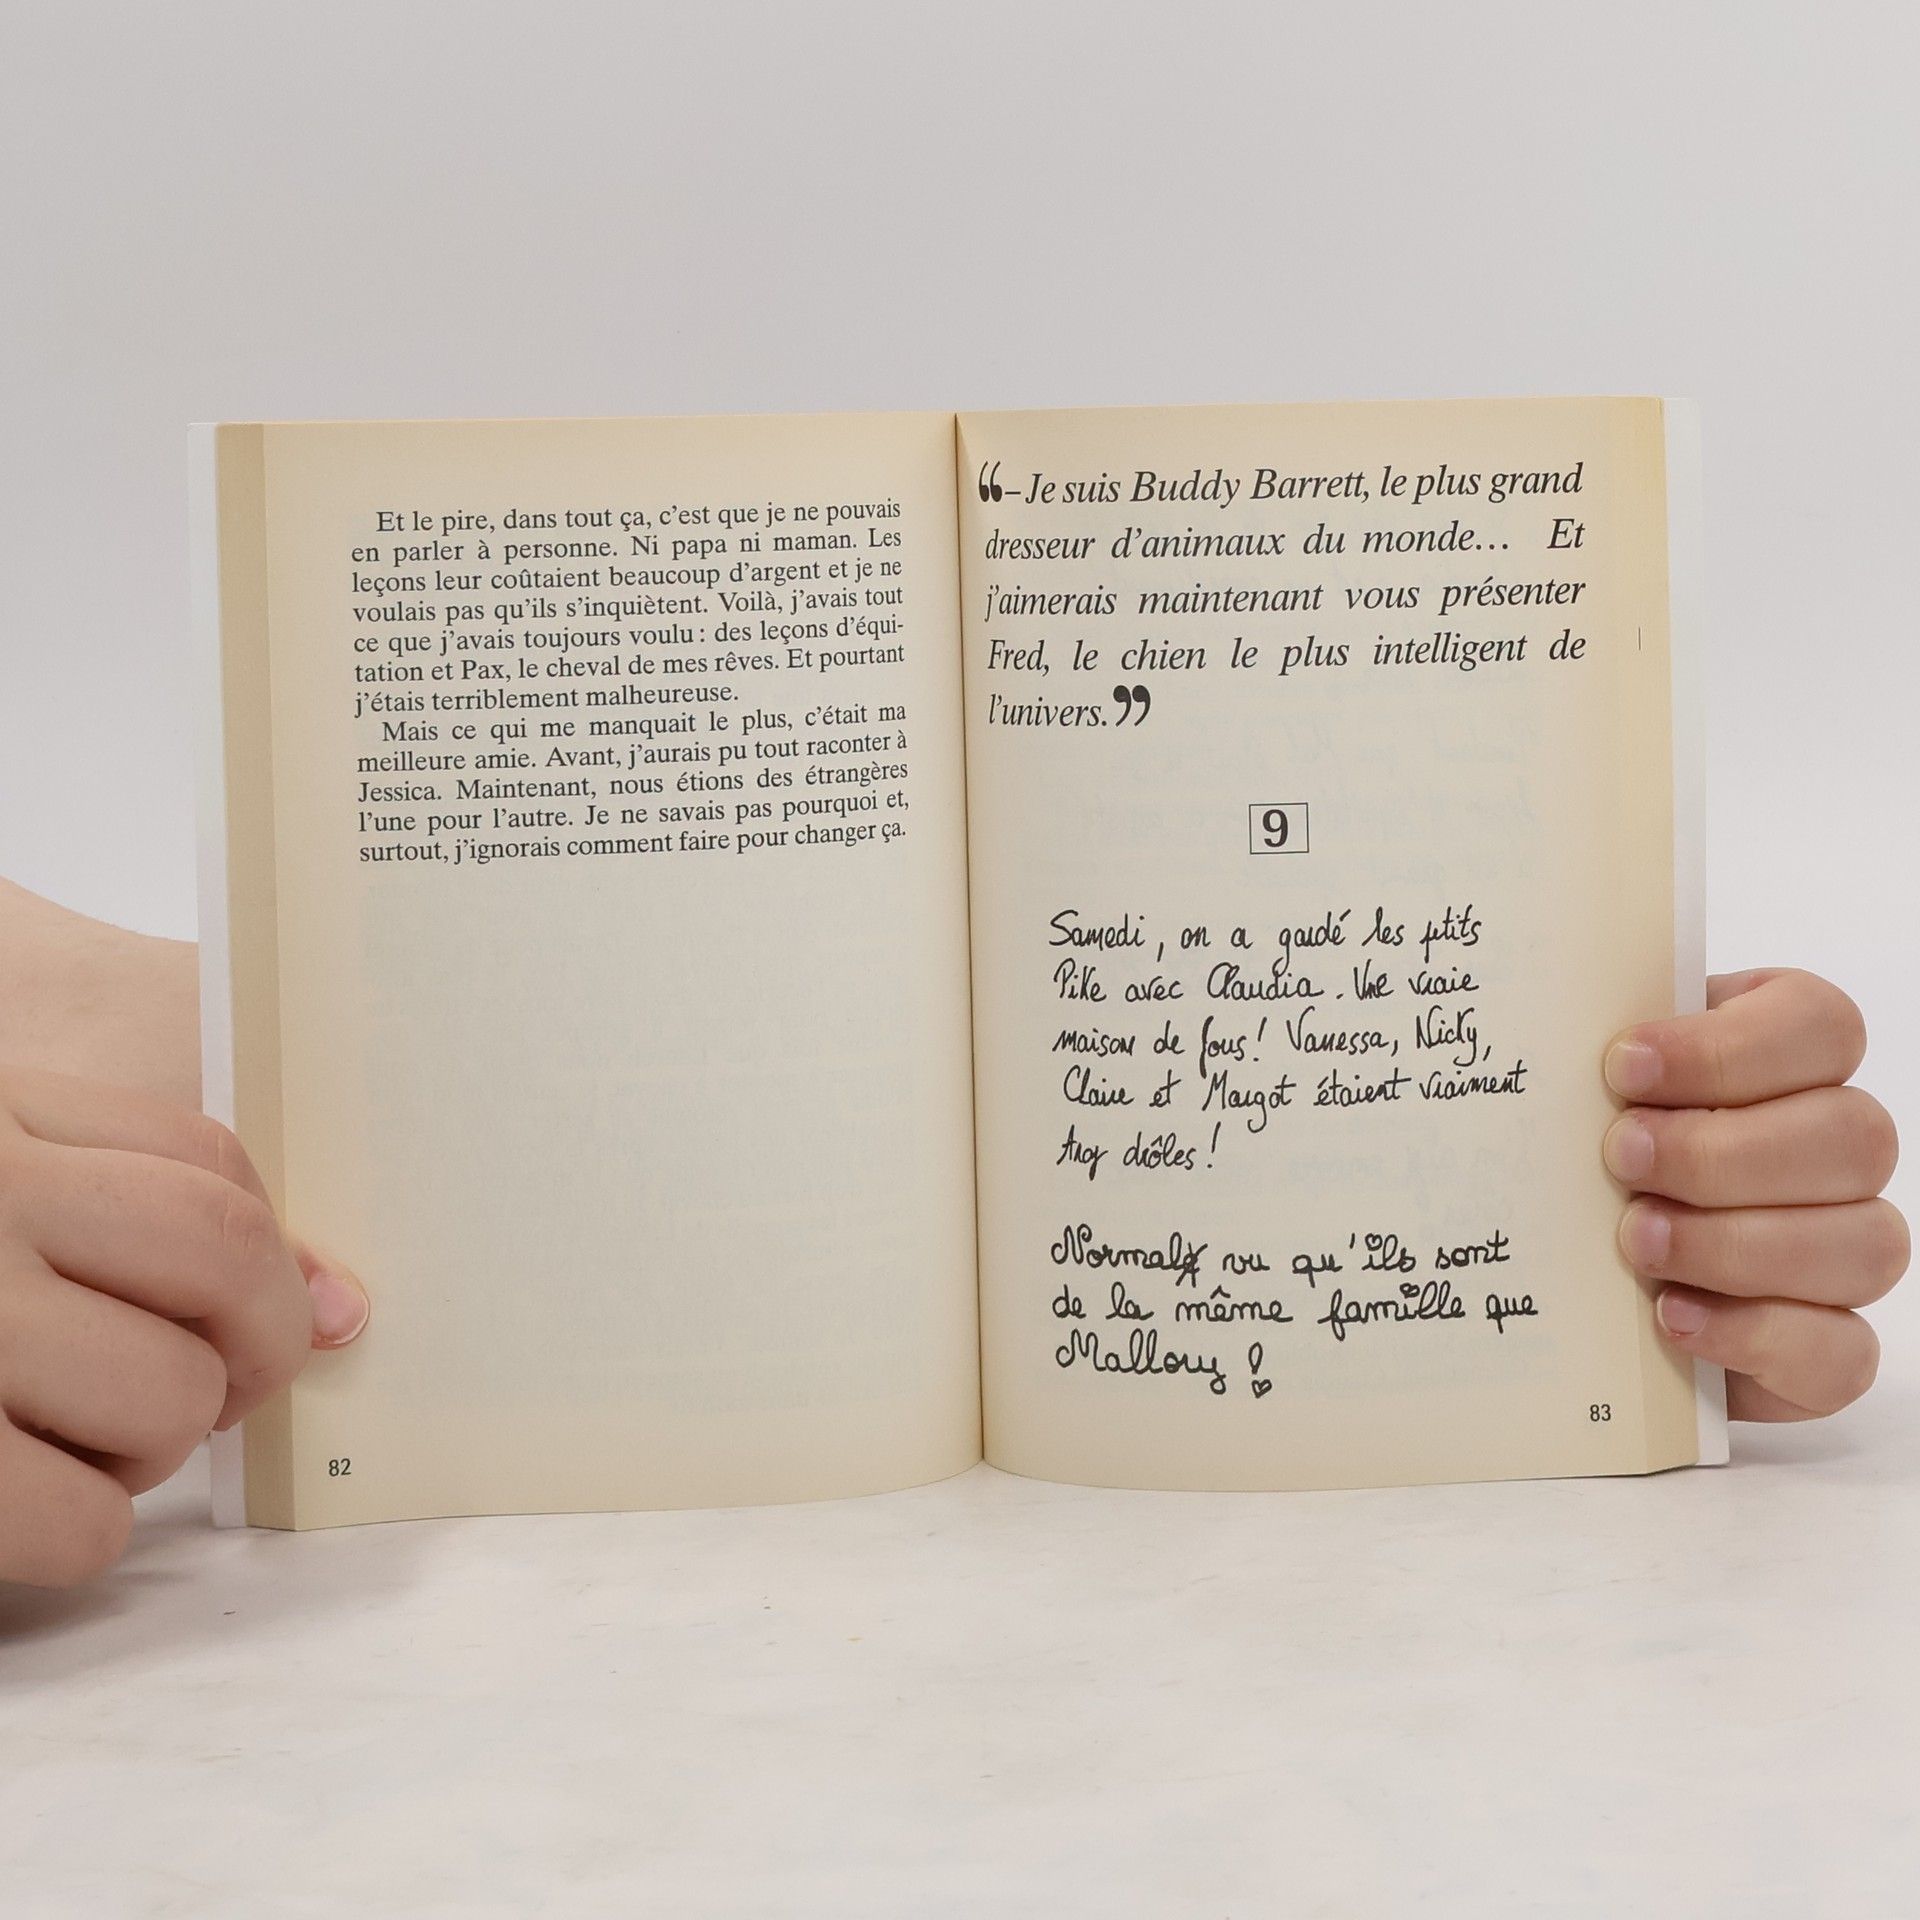 Et le pire, dans tout ça, c’est que je ne pouvais
en parler à personne. Ni papa ni maman. Les
leçons leur coûtaient beaucoup d’argent et je ne
voulais pas qu’ils s’inquiètent. Voilà, j’avais tout
ce que j’avais toujours voulu : des leçons d’équi-
tation et Pax, le cheval de mes rêves. Et pourtant
j’étais terriblement malheureuse.
Mais ce qui me manquait le plus, c’était ma
meilleure amie. Avant, j’aurais pu tout raconter à
Jessica. Maintenant, nous étions des étrangères
l’une pour l’autre. Je ne savais pas pourquoi et,
surtout, j’ignorais comment faire pour changer ça.
82
❝– Je suis Buddy Barrett, le plus grand
dresseur d’animaux du monde… Et
j’aimerais maintenant vous présenter
Fred, le chien le plus intelligent de
l’univers.❞
9
Samedi, on a gardé les petits
Pike avec Claudia. Une vraie
maison de fous ! Vanessa, Nicky,
Claire et Margot étaient vraiment
trop drôles !
Normal vu qu’ils sont
de la même famille que
Mallory !
83